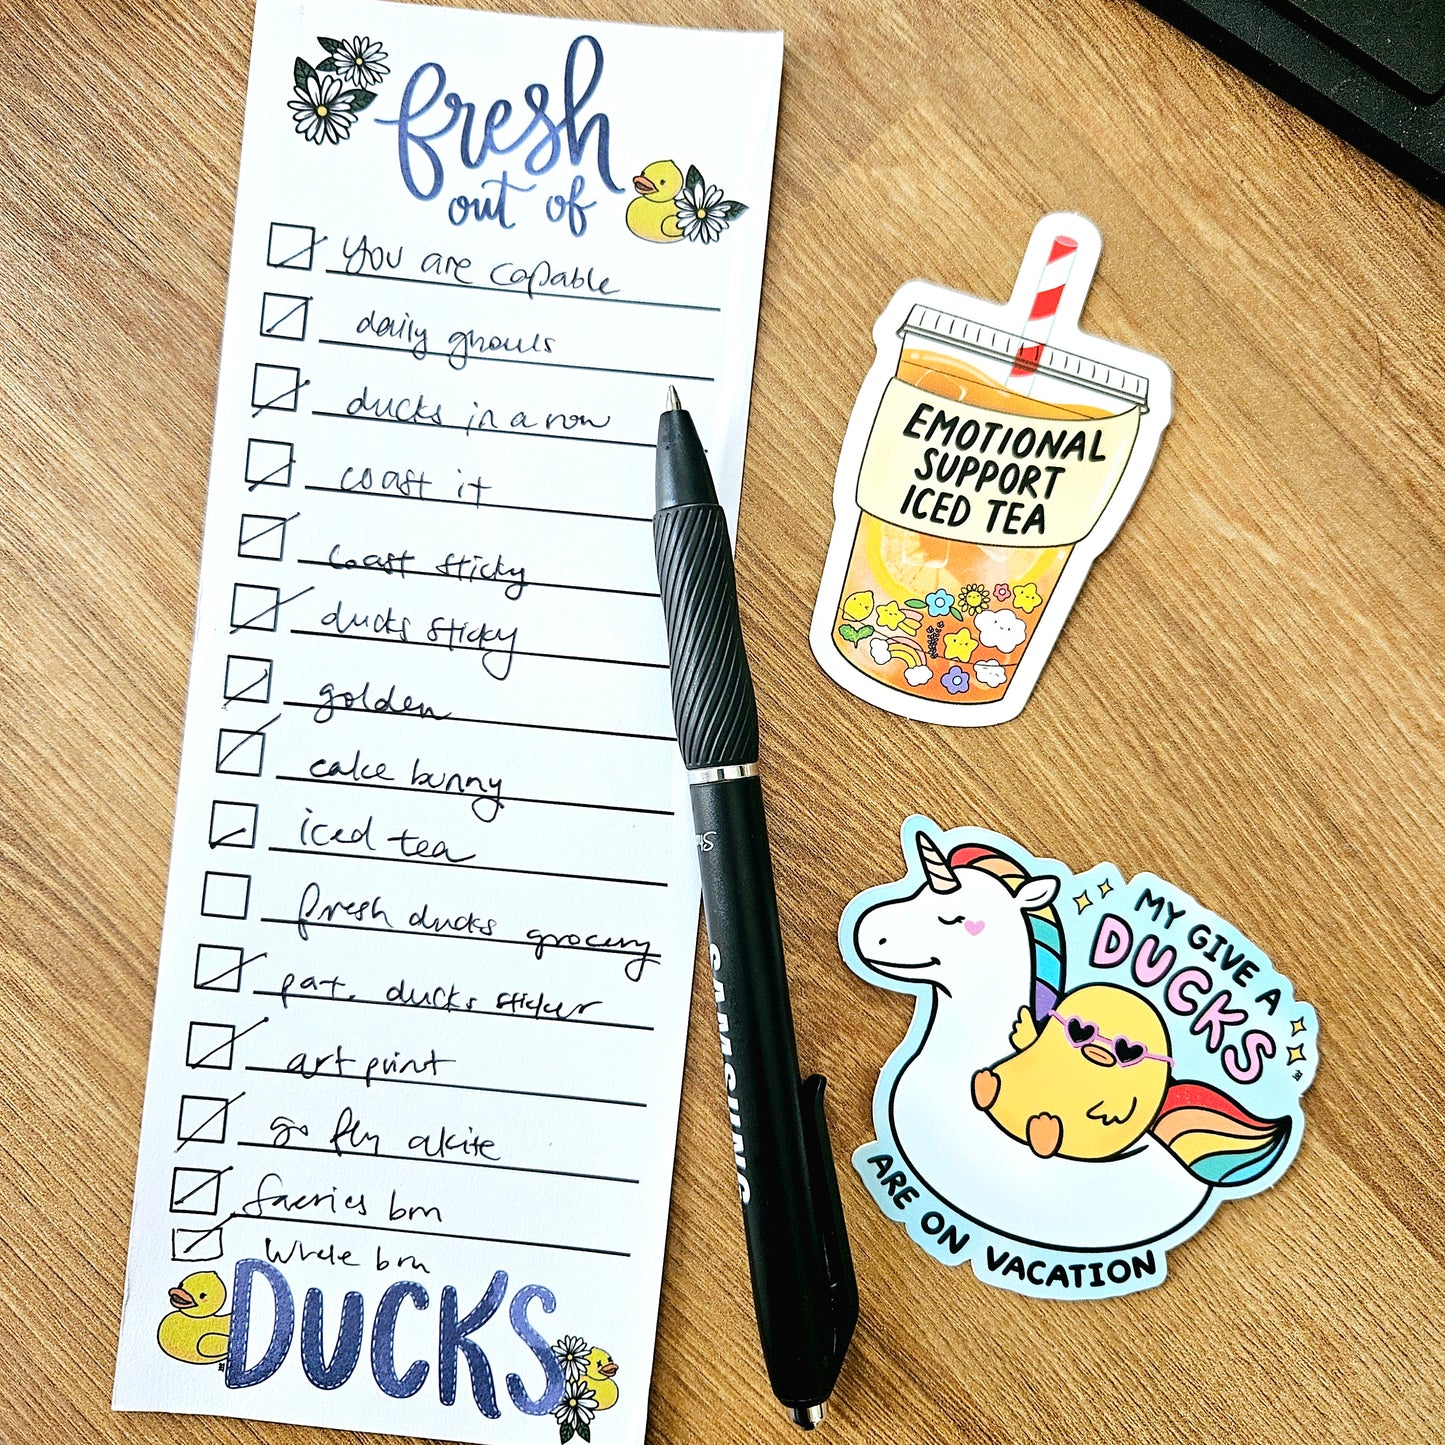 fresh
out of
You are capable
daily ghouls
ducks in a row
coast it
coast sticky
ducks sticky
golden
cake bunny
iced tea
fresh ducks grocery
pat. ducks sticker
art print
go fly a kite
faeries bm
Whale bm
DUCKS
SAMSUNG
EMOTIONAL
SUPPORT
ICED TEA
MY GIVE A
DUCKS
ARE ON VACATION